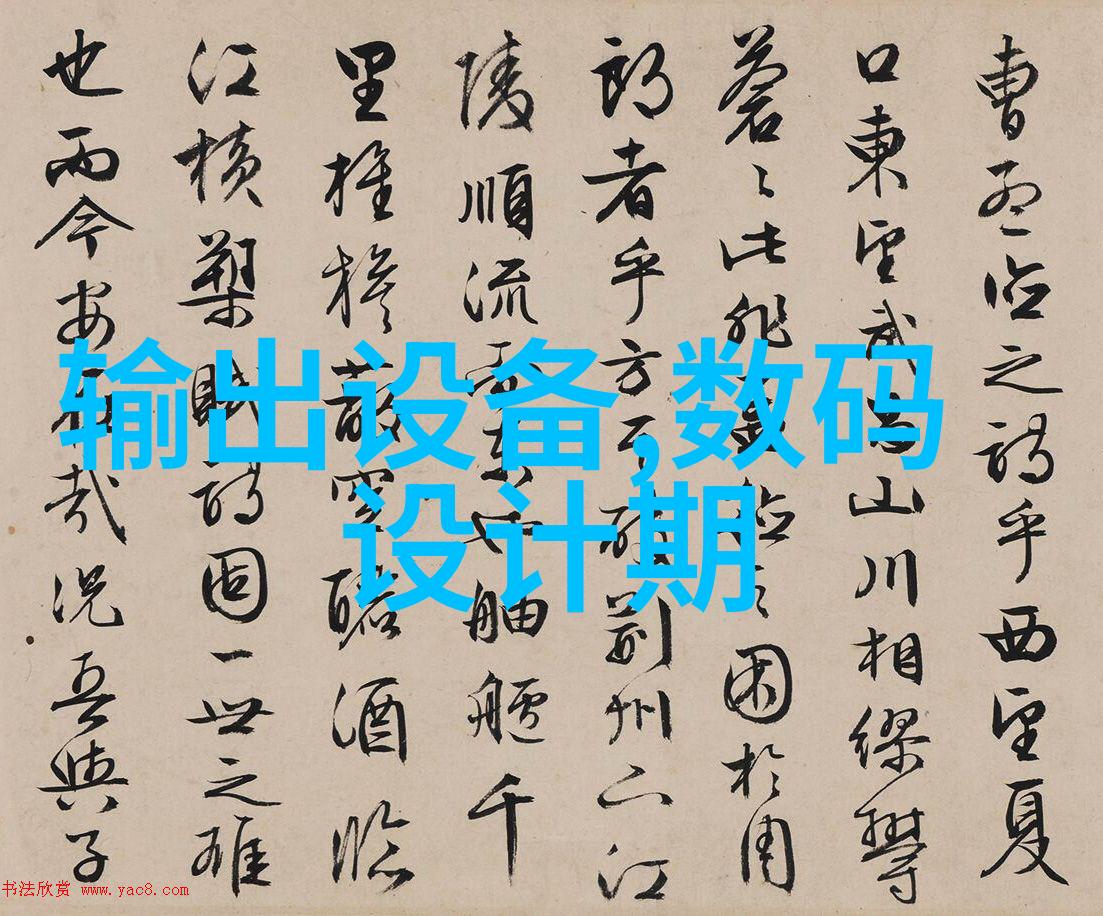 曹孟德之詩乎西望夏
口東望武昌山川相繆鬱
蒼〻此非孟德之困於周
郎者乎方其破荊州下江
陵順流而東也舳艫千
里旌旗蔽空釃酒臨
江橫槊賦詩固一世之雄
也而今安在哉況吾與子
输出设备,数码
设计期
书法欣赏 www.yac8.com